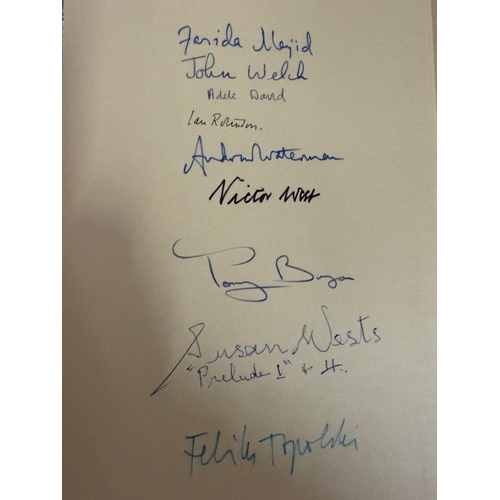 Farida Majid
John Welch
Adele David
Ian Robinson.
Andrew Waterman
Victor West
Tony
Susan Wests
"Prelude I" & 4.
Feliks Topolski